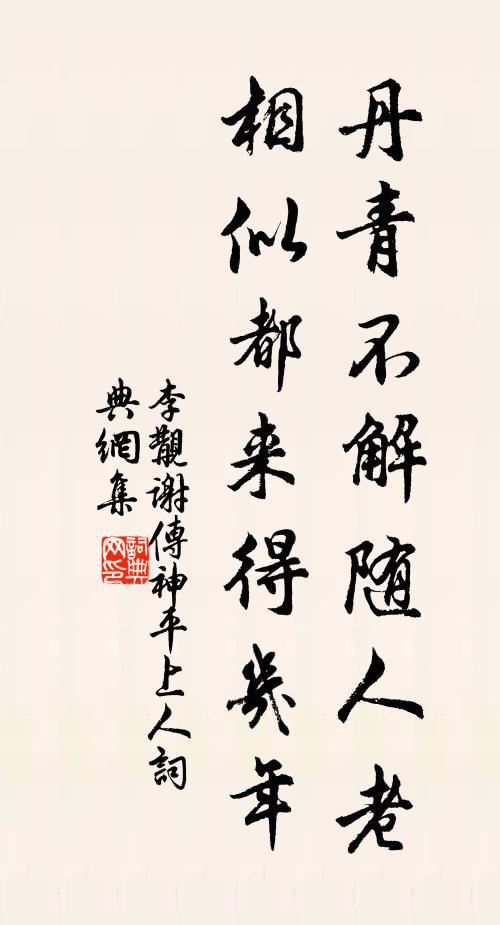 丹青不解随人老
相似都来得幾年
李覯谢傳神平上人詞
典網集
詞典
网印